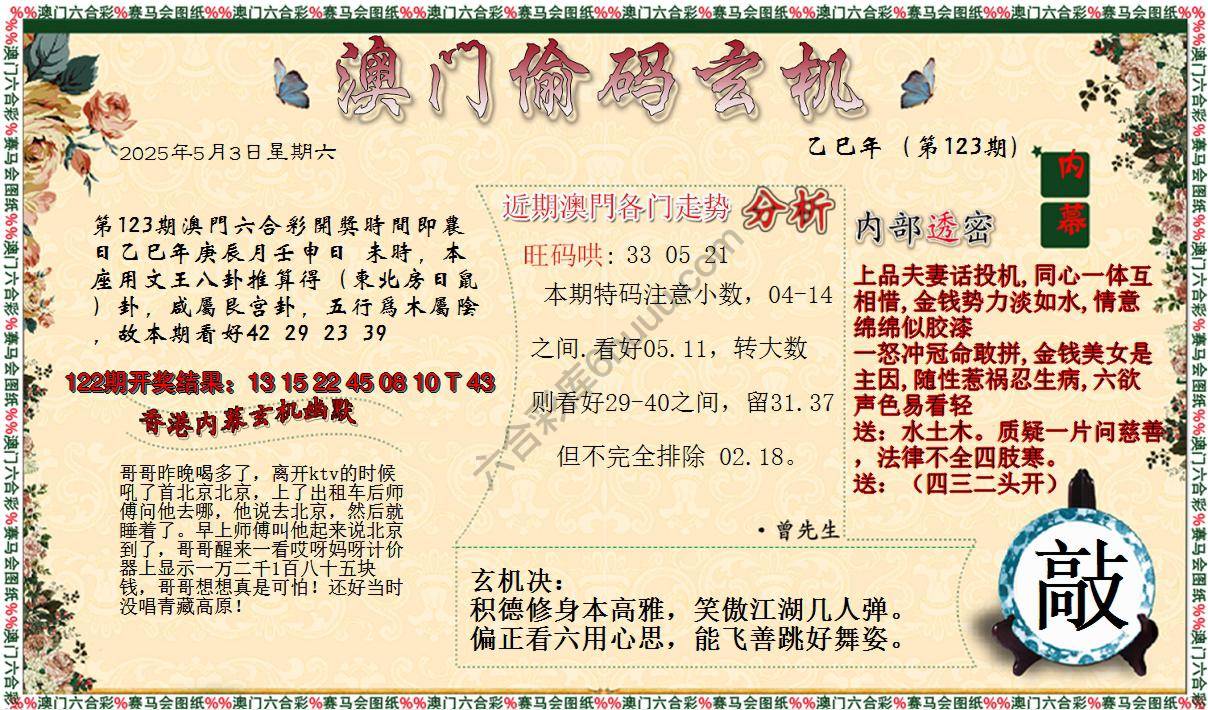 %%澳门六合彩%赛马会图纸%%澳门六合彩%赛马会图纸%%澳门六合彩%赛马会图纸%%澳门六合彩%赛马会图纸%%澳门六合彩%赛马会图纸%%澳门六合彩%赛马会图纸%%
澳门偷码玄机
2025年5月3日星期六
乙巳年（第123期）
内幕
第123期澳門六合彩開獎時間即農
日乙巳年庚辰月壬申日 未時，本
座用文王八卦推算得（東北房日鼠
）卦，咸屬艮宫卦，五行爲木屬陰
，故本期看好42 29 23 39
122期开奖结果：13 15 22 45 08 10 T 43
香港内幕玄机幽默
哥哥昨晚喝多了，离开ktv的时候
吼了首北京北京，上了出租车后师
傅问他去哪，他说去北京，然后就
睡着了。早上师傅叫他起来说北京
到了，哥哥醒来一看哎呀妈呀计价
器上显示一万二千1百八十五块
钱，哥哥想想真是可怕！还好当时
没唱青藏高原！
近期澳門各门走势 分析
旺码哄：33 05 21
本期特码注意小数，04-14
之间.看好05.11，转大数
则看好29-40之间，留31.37
但不完全排除 02.18。
·曾先生
内部透密
上品夫妻话投机,同心一体互
相惜,金钱势力淡如水,情意
绵绵似胶漆
一怒冲冠命敢拼,金钱美女是
主因,随性惹祸忍生病,六欲
声色易看轻
送：水土木。质疑一片问慈善
，法律不全四肢寒。
送：（四三二头开）
玄机决：
积德修身本高雅，笑傲江湖几人弹。
偏正看六用心思，能飞善跳好舞姿。
敲
%%澳门六合彩%赛马会图纸%%澳门六合彩%赛马会图纸%%澳门六合彩%赛马会图纸%%澳门六合彩%赛马会图纸%%澳门六合彩%赛马会图纸%%澳门六合彩%赛马会图纸%%